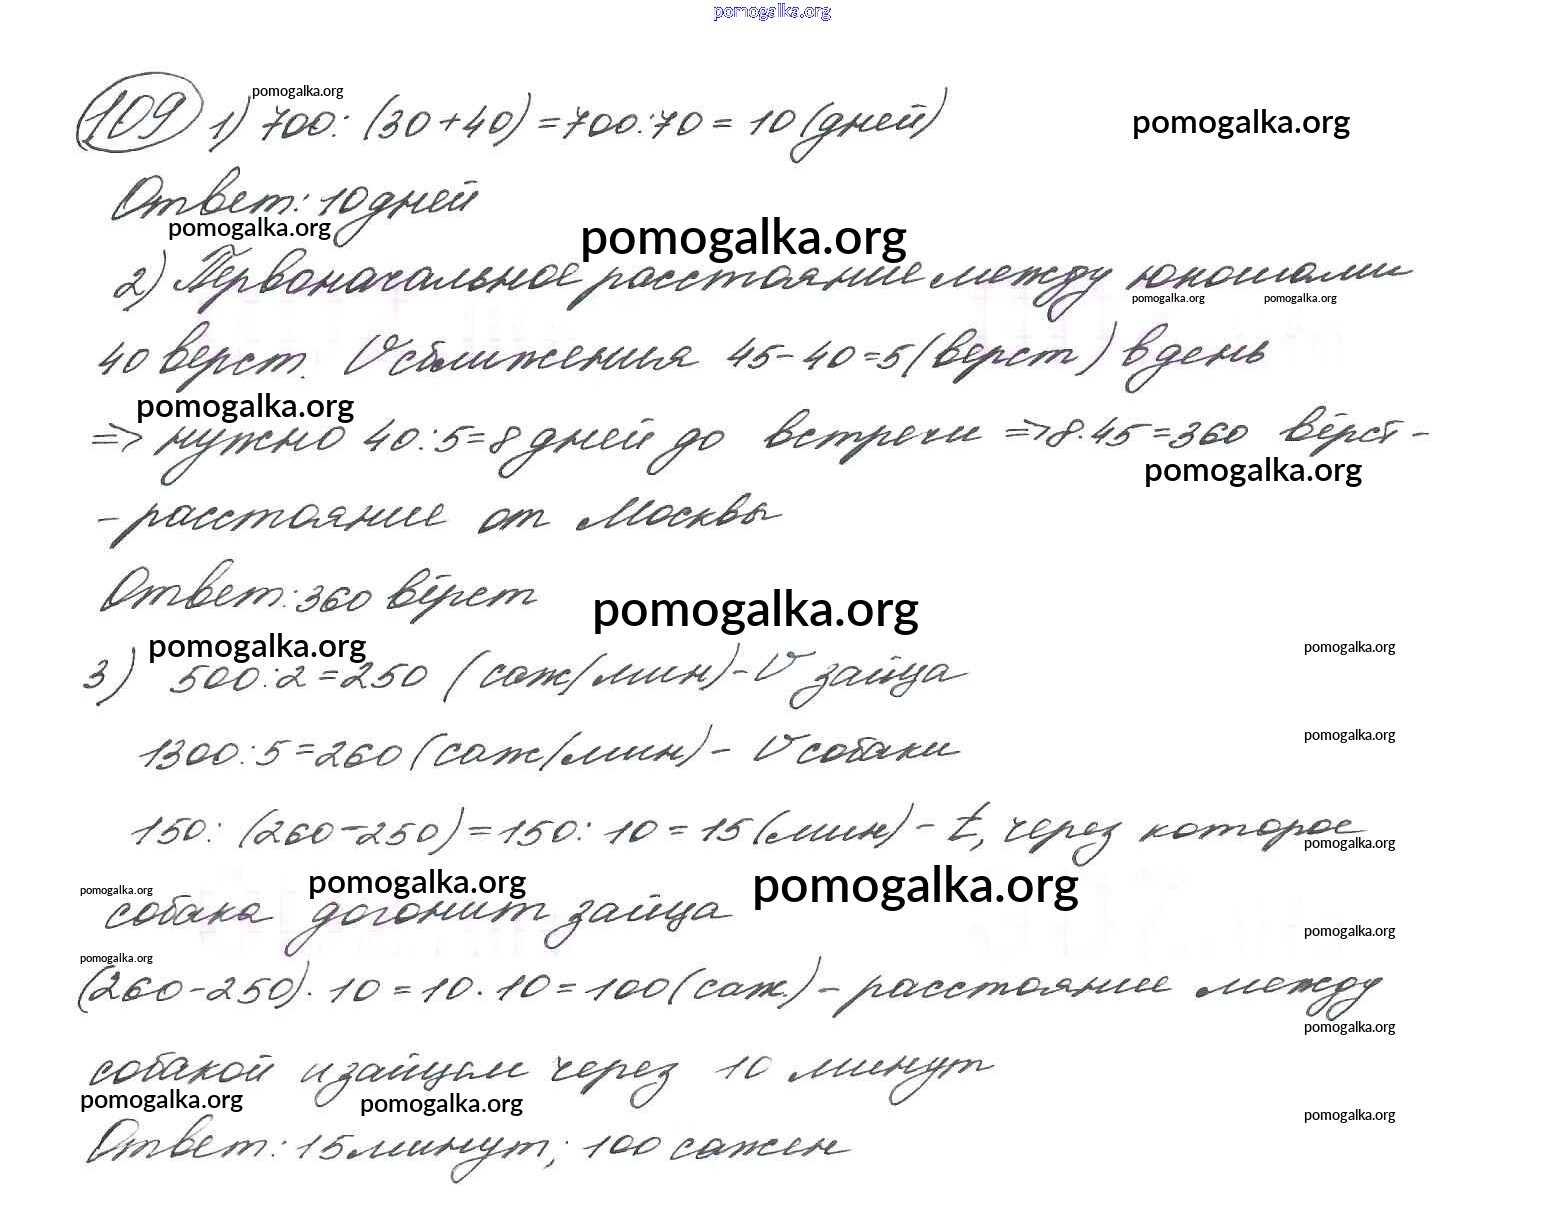 pomogalka.org
pomogalka.org
109 1) 700:(30+40)=700:70=10(дней)
pomogalka.org
Ответ: 10 дней
pomogalka.org
pomogalka.org
2) Первоначальное расстояние между юношами
pomogalka.org pomogalka.org
40 верст. V сближения 45-40=5(верст) в день
pomogalka.org
=> нужно 40:5=8 дней до встречи => 8·45=360 вёрст -
pomogalka.org
- расстояние от Москвы
Ответ: 360 вёрст
pomogalka.org
pomogalka.org
pomogalka.org
3) 500:2=250 (саж/мин) - V зайца
pomogalka.org
1300:5=260 (саж/мин) - V собаки
150:(260-250)=150:10=15(мин) - t, через которое
pomogalka.org
pomogalka.org pomogalka.org pomogalka.org
собака догонит зайца
pomogalka.org
pomogalka.org
(260-250)·10=10·10=100(саж.) - расстояние между
pomogalka.org
собакой и зайцем через 10 минут
pomogalka.org pomogalka.org
pomogalka.org
Ответ: 15 минут; 100 сажен